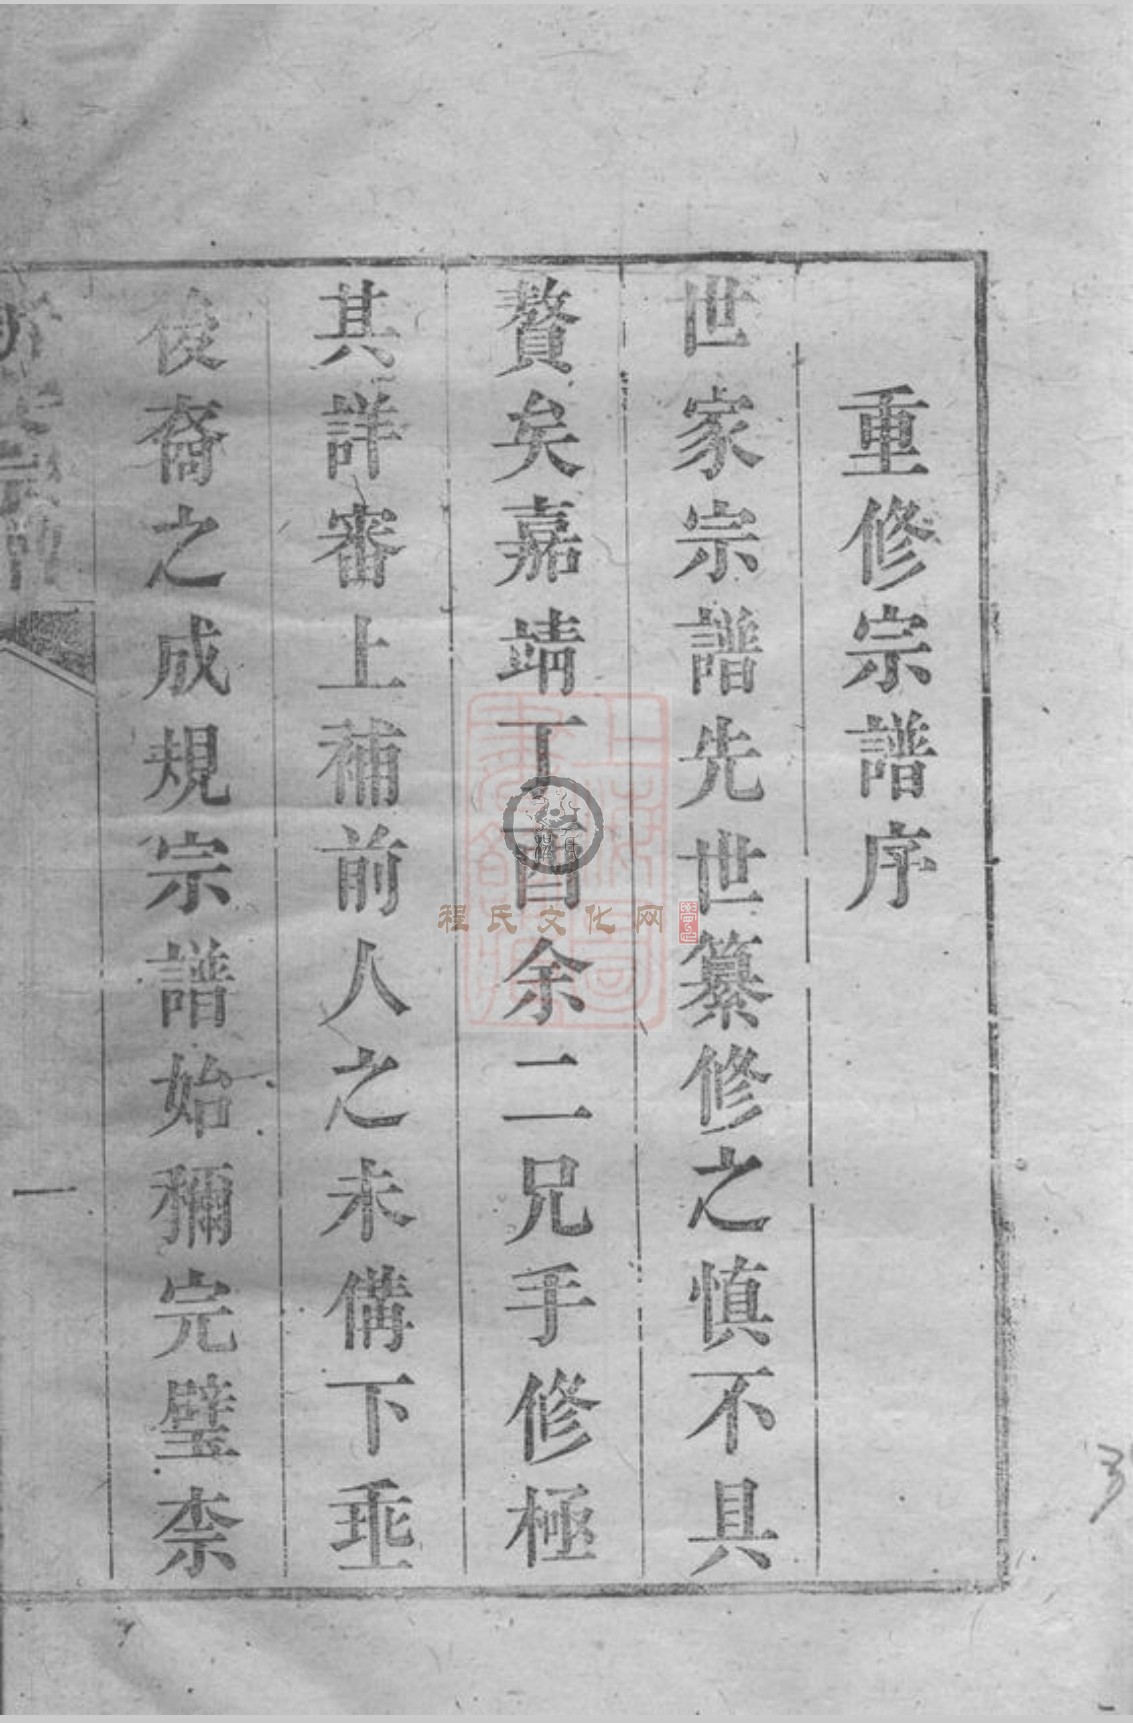 重修宗譜序
世家宗譜先世纂修之慎不具
贅矣嘉靖丁酉余二兄手修極
其詳審上補前人之未俻下垂
後裔之成規宗譜始彌完璧柰
宗譜
一
程氏文化网